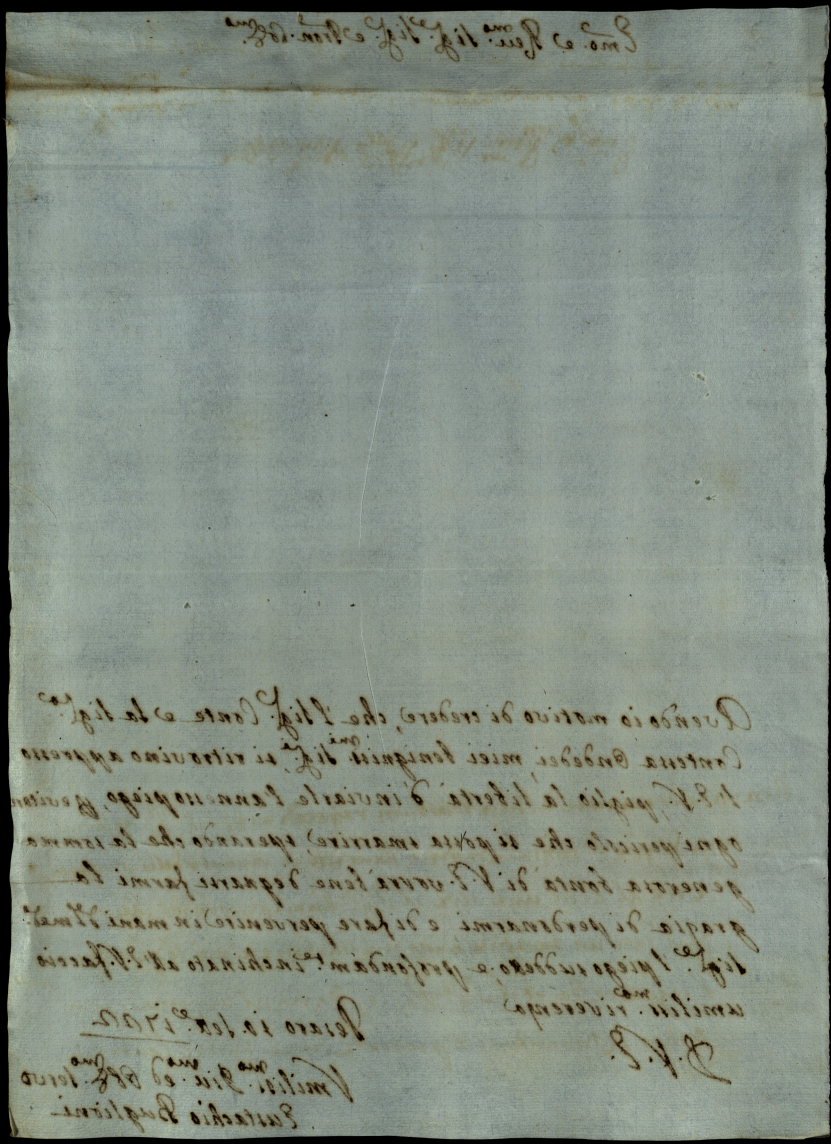 Emo. e Reu.mo Sig.re Sig.re e Pron. Obb.mo
Avendo io motivo di credere, che l'Sig.r Conte e la Sig.ra
Contessa Ondedei miei benigniss.mi Sig.ri si ritrovino appresso
l'E.V. piglio la libertà d'inviarle l'annesso piego, p evitare
ogni pericolo che si possa smarrire sperando che la somma
generosa bontà di V.E. vorrà bene degnarsi farmi la
grazia di perdonarmi e di fare pervenire in mani d. med.
Sig.re l piego suddetto, e profondam.te inchinato all'E.V. faccio
umiliss.ma riverenza
D. V. E.
Pesaro 10 Sett.e
Vmiliss.mo Diu.mo ed Obb.mo Servo
Eustachio Buglioni